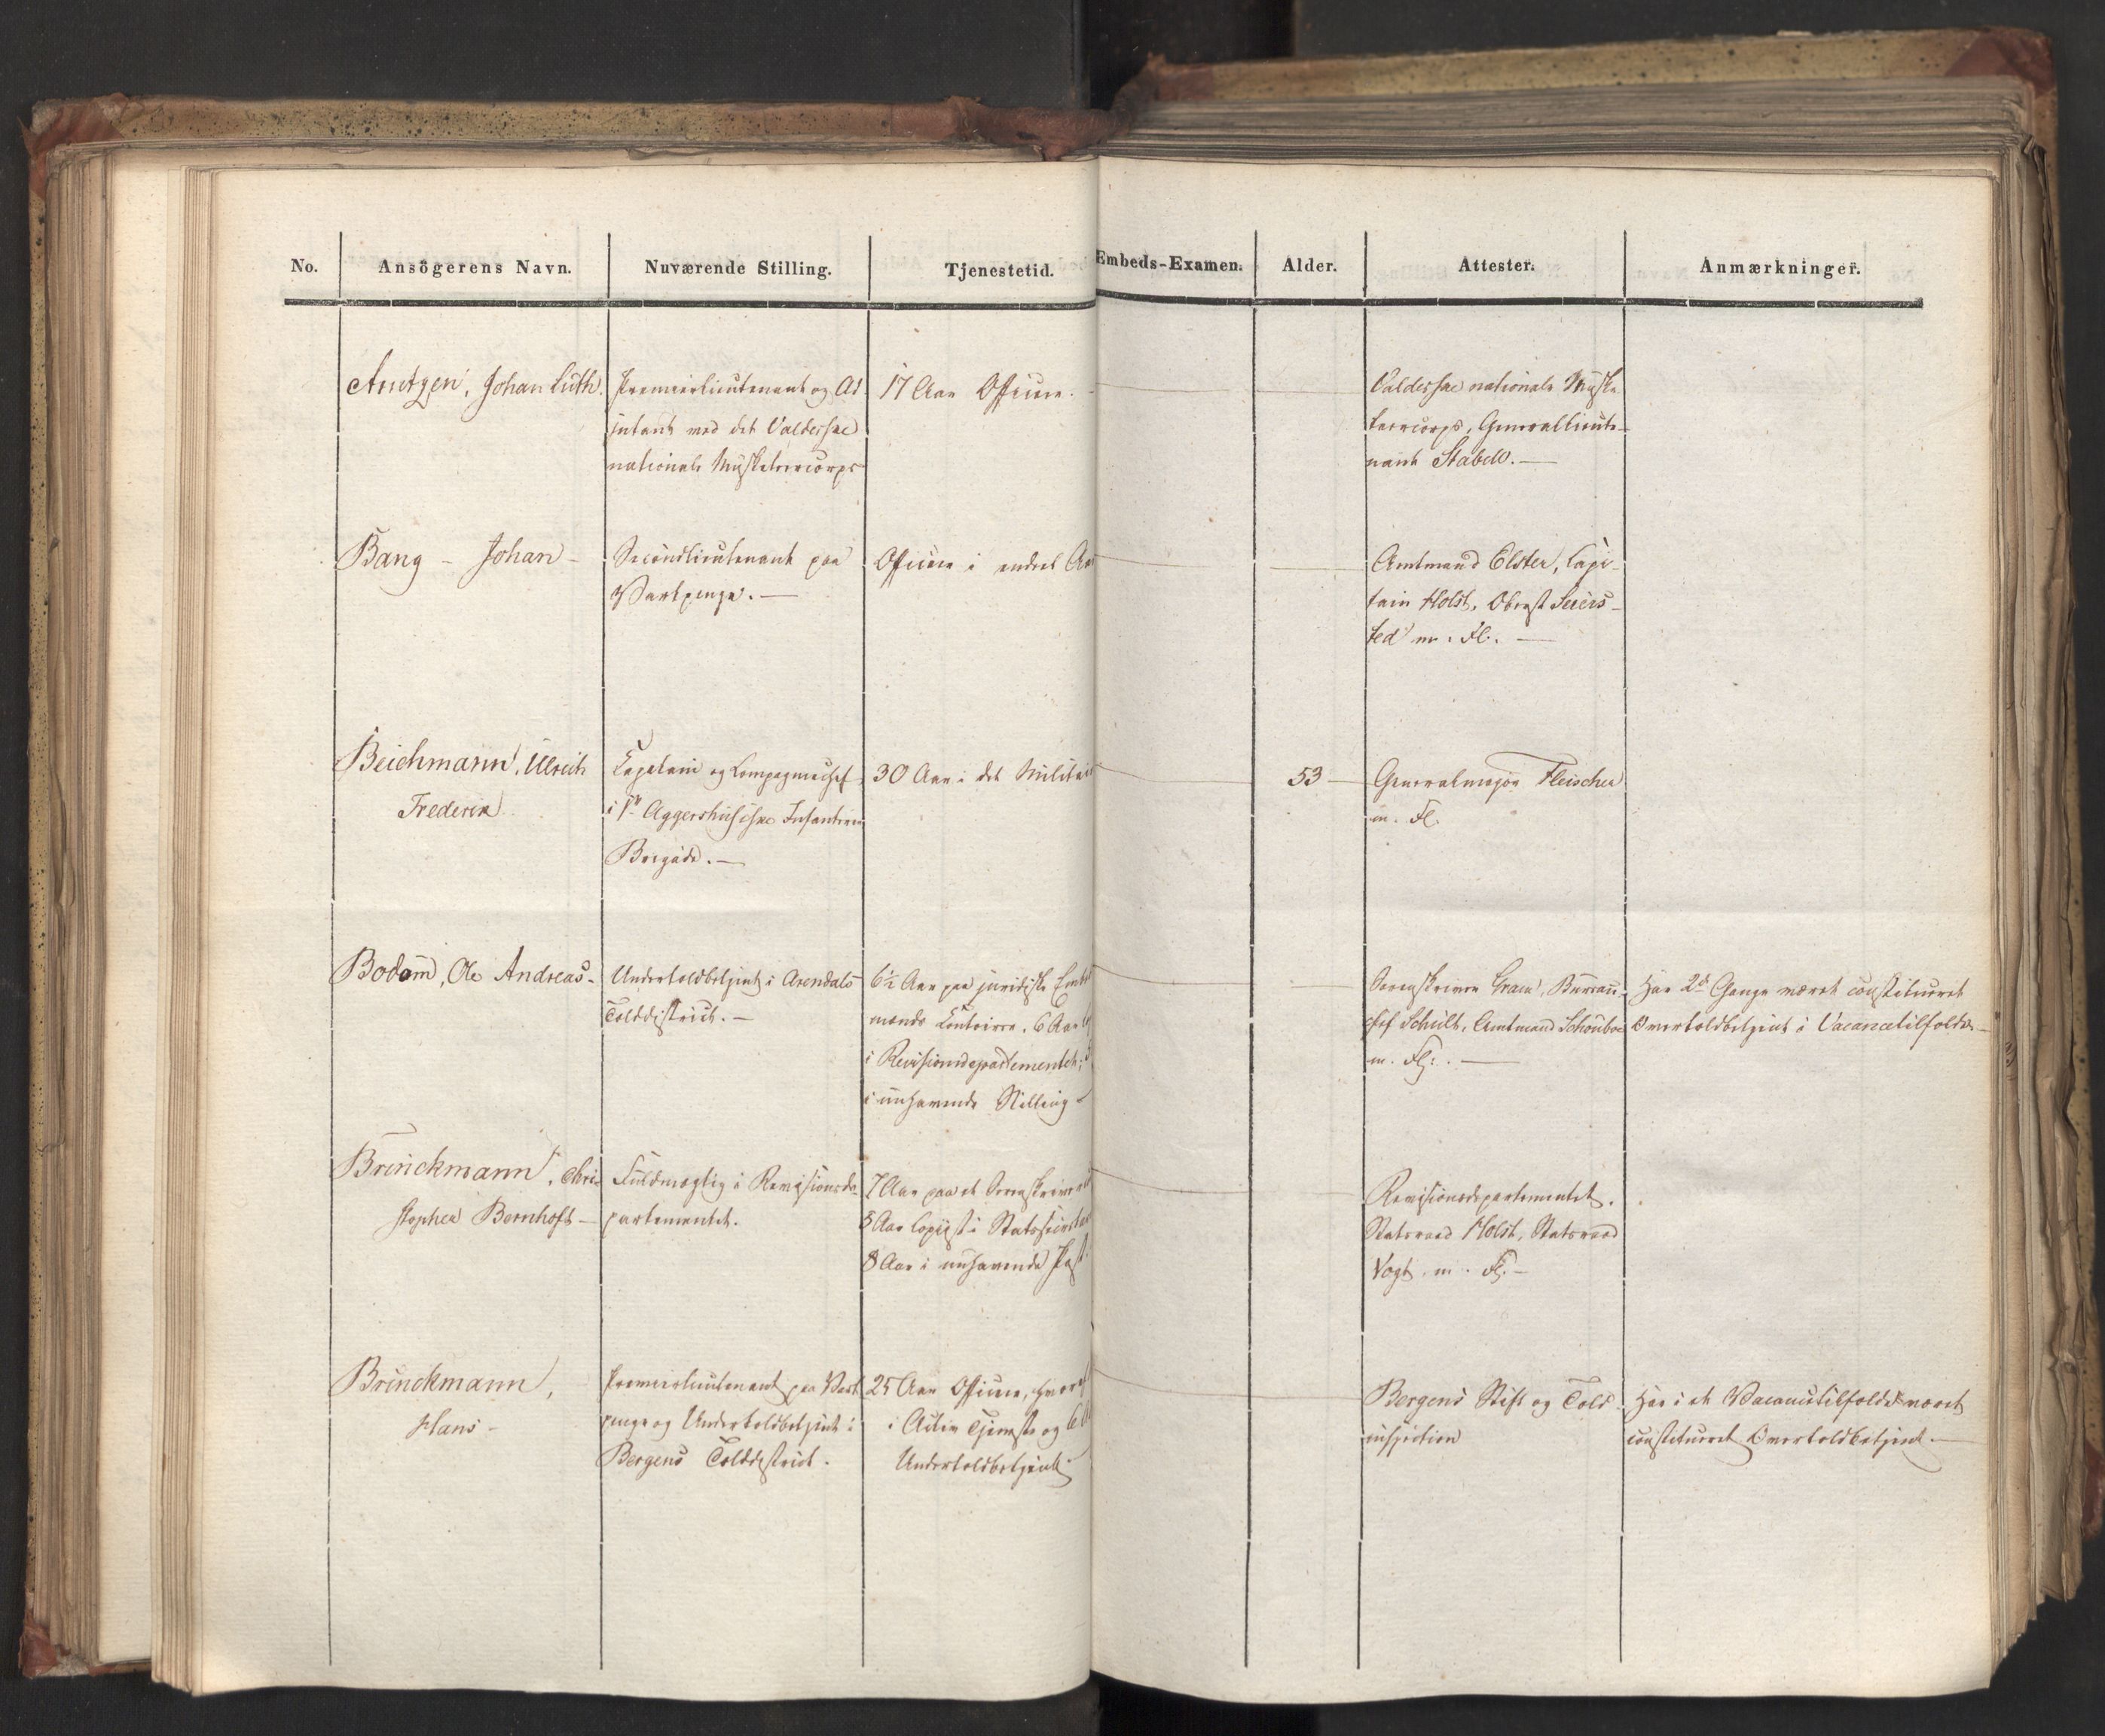 No.
Ansögerens Navn.
Nuværende Stilling.
Tjenestetid.
Embeds-Examen.
Alder.
Attester.
Anmærkninger.
Arntzen, Johan Luth.
Premierlieutenant og Ad
jutant ved det Valderske
nationale Musketeercorps
17 Aar Officier.
Valderske nationale Muske
teercorps, Generallieute-
nant Stabell. —
Bang - Johan -
Secondlieutenant paa
Vartpenge. —
Officier i endeel Aar
Amtmand Elster, Capi-
tain Holst, Oberst Seiers-
ted m. Fl. —
Beichmann, Ulrich
Frederik
Capitain og Compagniechef
i 1ste Aggershusiske Infanterie
Brigade. —
30 Aar i det Militair
53
Generalmajor Fleischer
m. Fl.
Bodom, Ole Andreas -
Undertoldbetjent i Arendals
Tolddistrict. —
6½ Aar paa juridiske Embeds
mænds Contoirer, 6 Aar
i Revisionsdepartementet;
i nuhavende Stilling
Sorenskriver Gram, Bureau-
chef Schult, Amtmand Schouboe
m. Fl. —
Har 2de Gange været constitueret
Overtoldbetjent i Vacancetilfælde —
Brinckmann, Chri-
stopher Bernhoft -
Fuldmægtig i Revisionsde-
partementet.
7 Aar paa et Sorenskriver
8 Aar Copiist i Statssecreta
8 Aar i nuhavende Post
Revisionsdepartementet.
Statsraad Holst, Statsraad
Vogt, m. Fl. -
Brinckmann,
Hans -
Premierlieutenant paa Vart
penge og Undertoldbetjent i
Bergens Tolddistrict.
25 Aar Officier, hvoraf
i Activ Tjeneste og 6
Undertoldbetjent
Bergens Stift og Told
inspection
Har i et Vacancetilfælde været
constitueret Overtoldbetjent. —